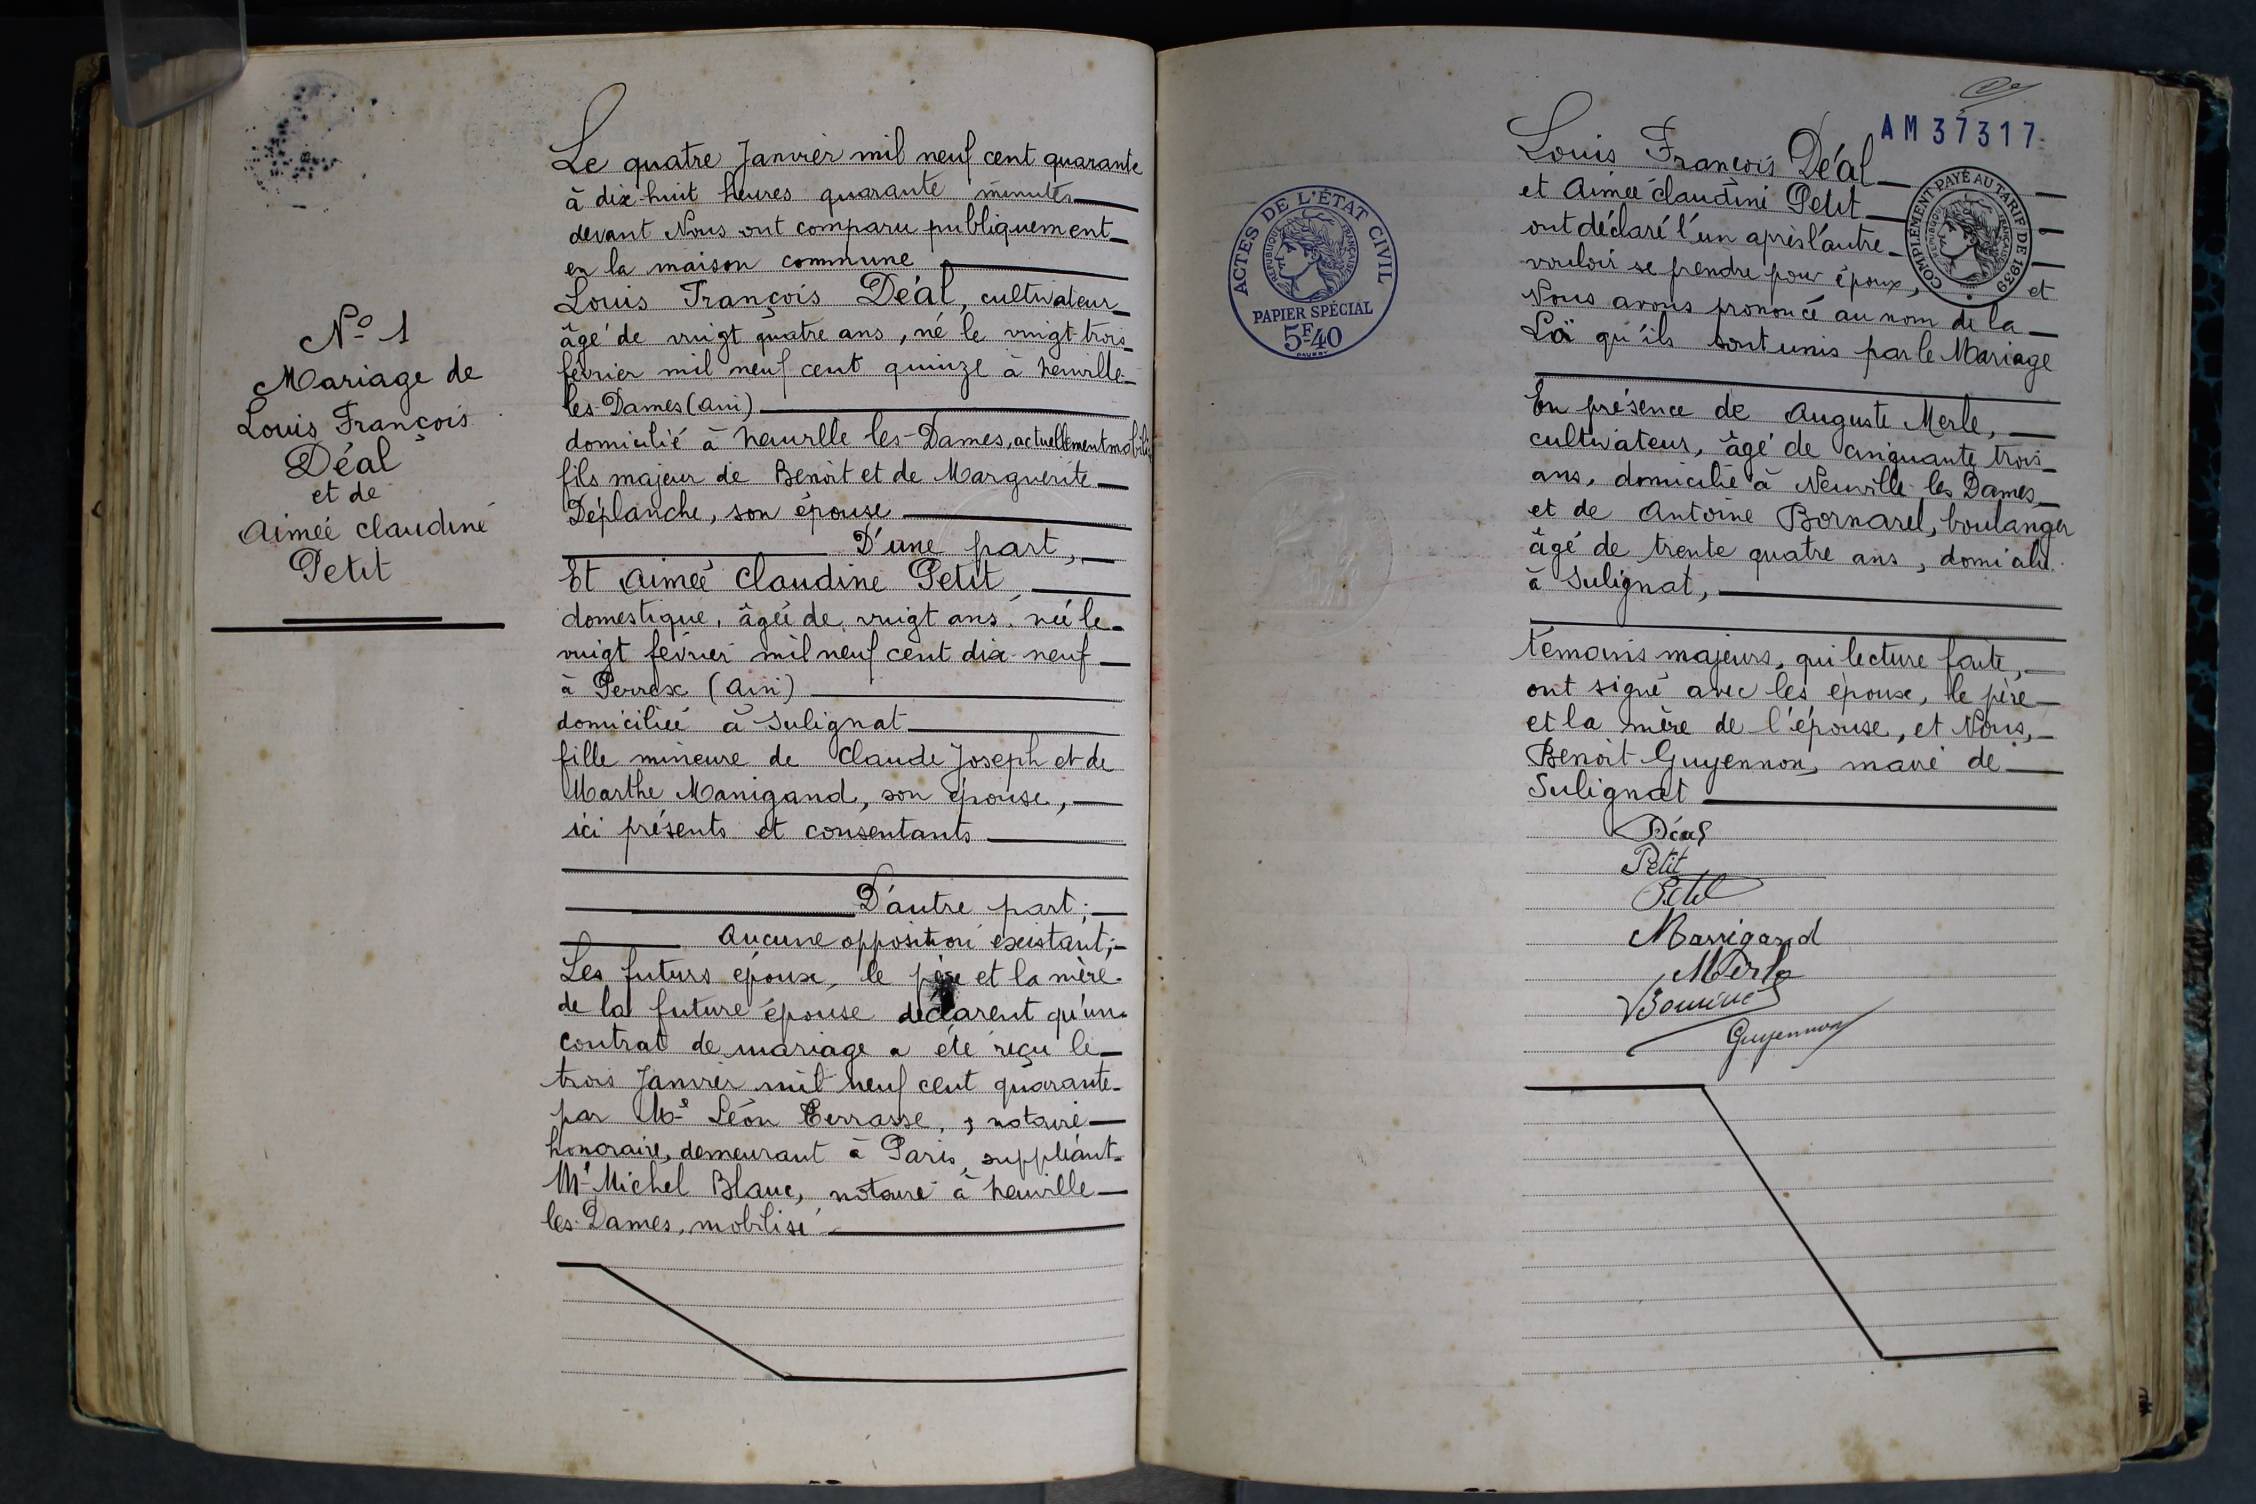 N° 1
Mariage de
Louis François
Déal
et de
Aimée Claudine
Petit
Le quatre Janvier mil neuf cent quarante
à dix-huit heures quarante minutes
devant Nous ont comparu publiquement
en la maison commune
Louis François Déal, cultivateur
âgé de vingt quatre ans, né le vingt-trois
février mil neuf cent quinze à Neuville-
les-Dames (Ain)
domicilié à Neuville les-Dames, actuellement mobilisé
fils majeur de Benoit et de Marguerite
Déplanche, son épouse
D'une part,
Et Aimée Claudine Petit
domestique, âgée de vingt ans, née le
vingt février mil neuf cent dix-neuf
à Perrex (Ain)
domiciliée à Sulignat
fille mineure de Claude Joseph et de
Marthe Manigand, son épouse,
ici présents et consentants
D'autre part;
Aucune opposition existant;
Les futurs époux, le père et la mère
de la future épouse déclarent qu'un
contrat de mariage a été reçu le
trois Janvier mil neuf cent quarante
par Me Léon Terrasse, notaire
honoraire, demeurant à Paris, suppléant
Me Michel Blanc, notaire à Neuville
les-Dames, mobilisé
AM 37317
ACTES DE L'ÉTAT CIVIL
RÉPUBLIQUE FRANÇAISE
PAPIER SPÉCIAL
5F40
COMPLÉMENT PAYÉ AU TARIF DE 1939
RÉPUBLIQUE FRANÇAISE
Louis François Déal
et Aimée Claudine Petit
ont déclaré l'un après l'autre
vouloir se prendre pour époux, et
Nous avons prononcé au nom de la
Loi qu'ils sont unis par le Mariage
En présence de Auguste Merle,
cultivateur, âgé de cinquante trois
ans, domicilié à Neuville-les Dames
et de Antoine Bornarel, boulanger
âgé de trente quatre ans, domicilié
à Sulignat,
témoins majeurs, qui lecture faite,
ont signé avec les époux, le père
et la mère de l'épouse, et Nous,
Benoit Guyennon, maire de
Sulignat
Déal
Petit
Petit
Manigand
Merle
Guyennon